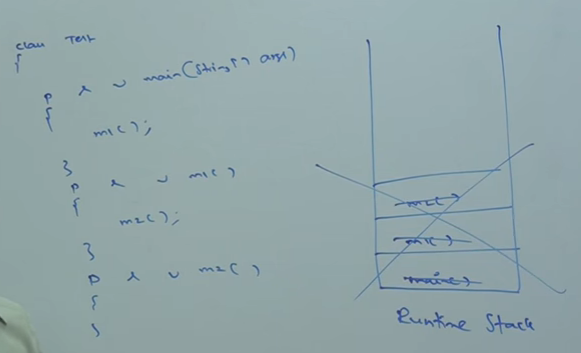 class Test
{
p s v main(String[] args)
{
m1();
}
p s v m1()
{
m2();
}
p s v m2()
{
}
m2()
m1()
main()
Runtime Stack